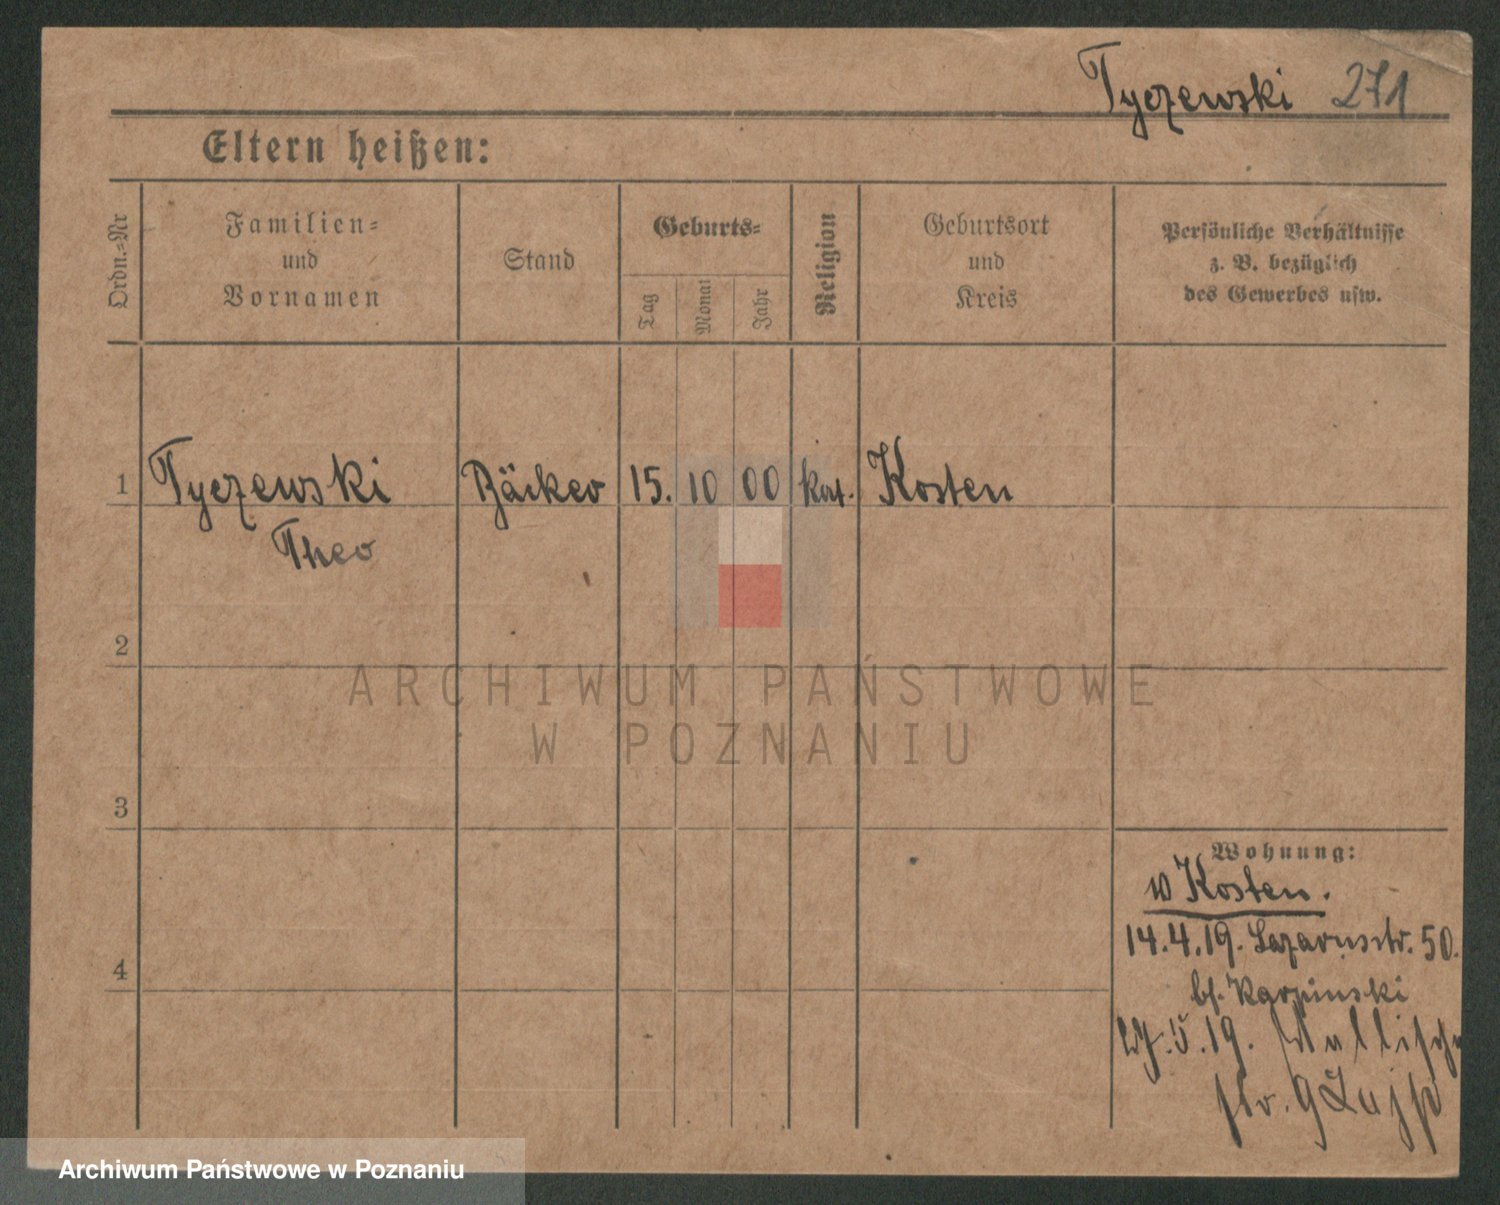 Tyczewski 271
Eltern heißen:
Ordn.-Nr
Familien-
und
Vornamen
Stand
Geburts-
Tag
Monat
Jahr
Religion
Geburtsort
und
Kreis
Persönliche Verhältnisse
z. B. bezüglich
des Gewerbes usw.
1 Tyczewski Bäcker 15. 10 00 kat. Kosten
Theo
2
ARCHIWUM PAŃSTWOWE
W POZNANIU
3
Wohnung:
Kosten.
14.4.19. Lazarusstr. 50.
bf. Karpinski
4
27.5.19. Wallische
str. 9
Archiwum Państwowe w Poznaniu